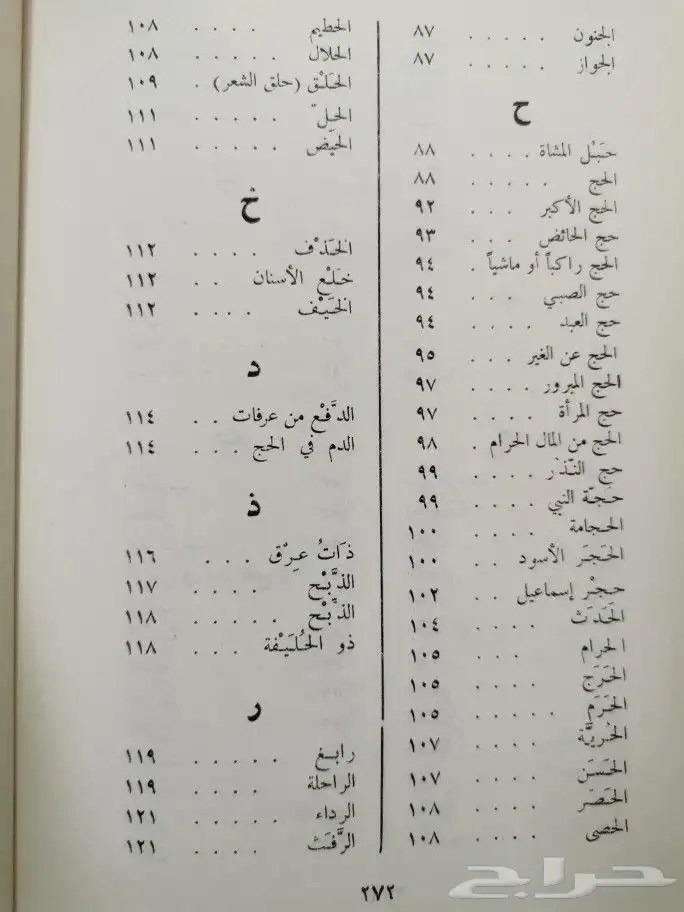 الجنون . . . . . ٨٧
الجواز . . . . . ٨٧
ح
حَبْل المشاة . . . . ٨٨
الحج . . . . . ٨٨
الحج الأكبر . . . ٩٢
حج الحائض . . . ٩٣
الحج راكباً أو ماشياً . ٩٤
حج الصبي . . . ٩٤
حج العبد . . . . ٩٤
الحج عن الغير . . . ٩٥
الحج المبرور . . . . ٩٧
حج المرأة . . . . ٩٧
الحج من المال الحرام . ٩٨
حج النّذر . . . . ٩٩
حَجّة النبي . . . . ٩٩
الحجامة . . . . ١٠٠
الحَجَر الأسود . . ١٠٠
حِجْر إسماعيل . . ١٠٢
الحَدَث . . . . ١٠٤
الحرام . . . ١٠٥
الحَرَج . . . . ١٠٥
الحَرَم . . . . ١٠٥
الحُريَّة . . . . ١٠٧
الحَسَن . . . . ١٠٧
الحَصَر . . . . ١٠٨
الحصى . . . . ١٠٨
الحطيم . . . . ١٠٨
الحلال . . . . . ١٠٨
الحَلْق (حلق الشعر) . ١٠٩
الحِلّ . . . . . ١١١
الحيْض . . . . . ١١١
خ
الخَذْف . . . . ١١٢
خَلْع الأسنان . . ١١٢
الخَيْف . . . . ١١٢
د
الدَّفْع من عرفات . . ١١٤
الدم في الحج . . . ١١٤
ذ
ذَاتُ عِرْق . . . ١١٦
الذَّبْح . . . . ١١٧
الذِّبْح . . . . . ١١٨
ذو الحُلَيْفة . . . ١١٨
ر
رابغ . . . . . ١١٩
الراحلة . . . . ١١٩
الرداء . . . . . ١٢١
الرَّفَث . . . . ١٢١
٢٧٢
حراج